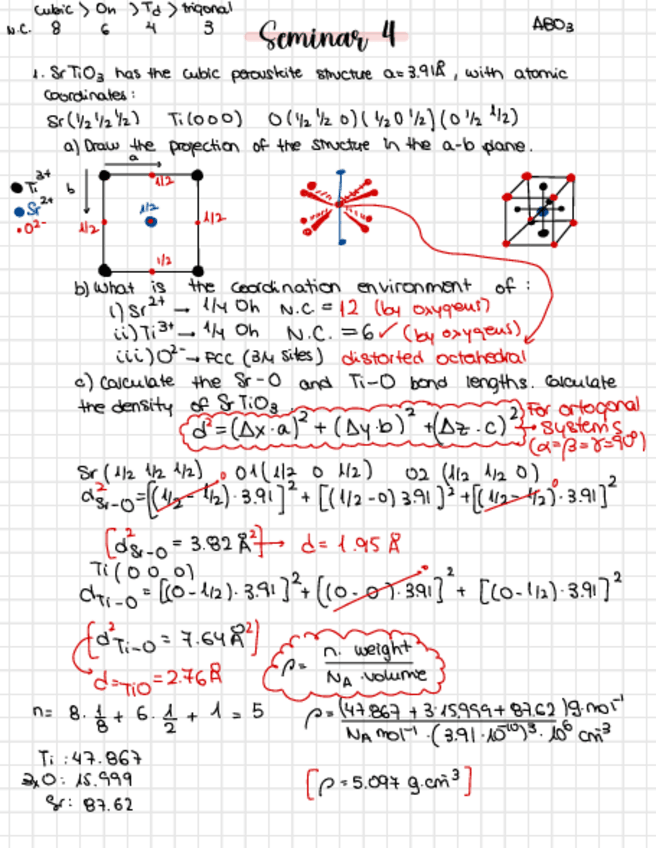 cubic > Oh > Td > trigonal
N.C. 8 6 4 3
Seminar 4
ABO3
1. SrTiO3 has the cubic perouskite structure a= 3.91Å, with atomic
coordinates:
Sr(1/2 1/2 1/2) Ti(000) O(1/2 1/2 0)(1/2 0 1/2)(0 1/2 1/2)
a) Draw the projection of the structure in the a-b plane.
a
Ti3+
b
Sr2+
O2-
1/2
1/2
1/2
1/2
1/2
b) What is the coordination environment of:
i) Sr2+ → 1/4 Oh N.C. = 12 (by oxygens)
ii) Ti3+ → 1/4 Oh N.C. = 6 ✓ (by oxygens)
iii) O2- → FCC (3/4 sites) distorted octahedral
c) Calculate the Sr-O and Ti-O bond lengths. Calculate
the density of SrTiO3.
d²=(Δx·a)² + (Δy·b)² + (Δz·c)²
For ortogonal
→ systems
(α=β=γ=90°)
Sr (1/2 1/2 1/2) O1(1/2 0 1/2) O2 (1/2 1/2 0)
d²Sr-O = [(1/2 - 1/2)·3.91]² + [(1/2-0) 3.91]² + [(1/2 - 1/2)·3.91]²
0
0
[d²Sr-O = 3.82 Å²] → d= 1.95 Å
Ti (0 0 0)
dTi-O = [(0-1/2)·3.91]² + [(0-0)·3.91]² + [(0-1/2)·3.91]²
0
[d²Ti-O = 7.64 Å²]
d=TiO = 2.76Å
ρ = n. weight / NA · volume
n= 8·1/8 + 6·1/2 + 1 = 5
ρ = (47.867 + 3·15.999 + 87.62) g·mol⁻¹ / NA mol⁻¹ · (3.91·10⁻¹⁰)³ · 10⁶ cm³
Ti : 47.867
3xO: 15.999
Sr: 87.62
[ρ = 5.097 g.cm³]